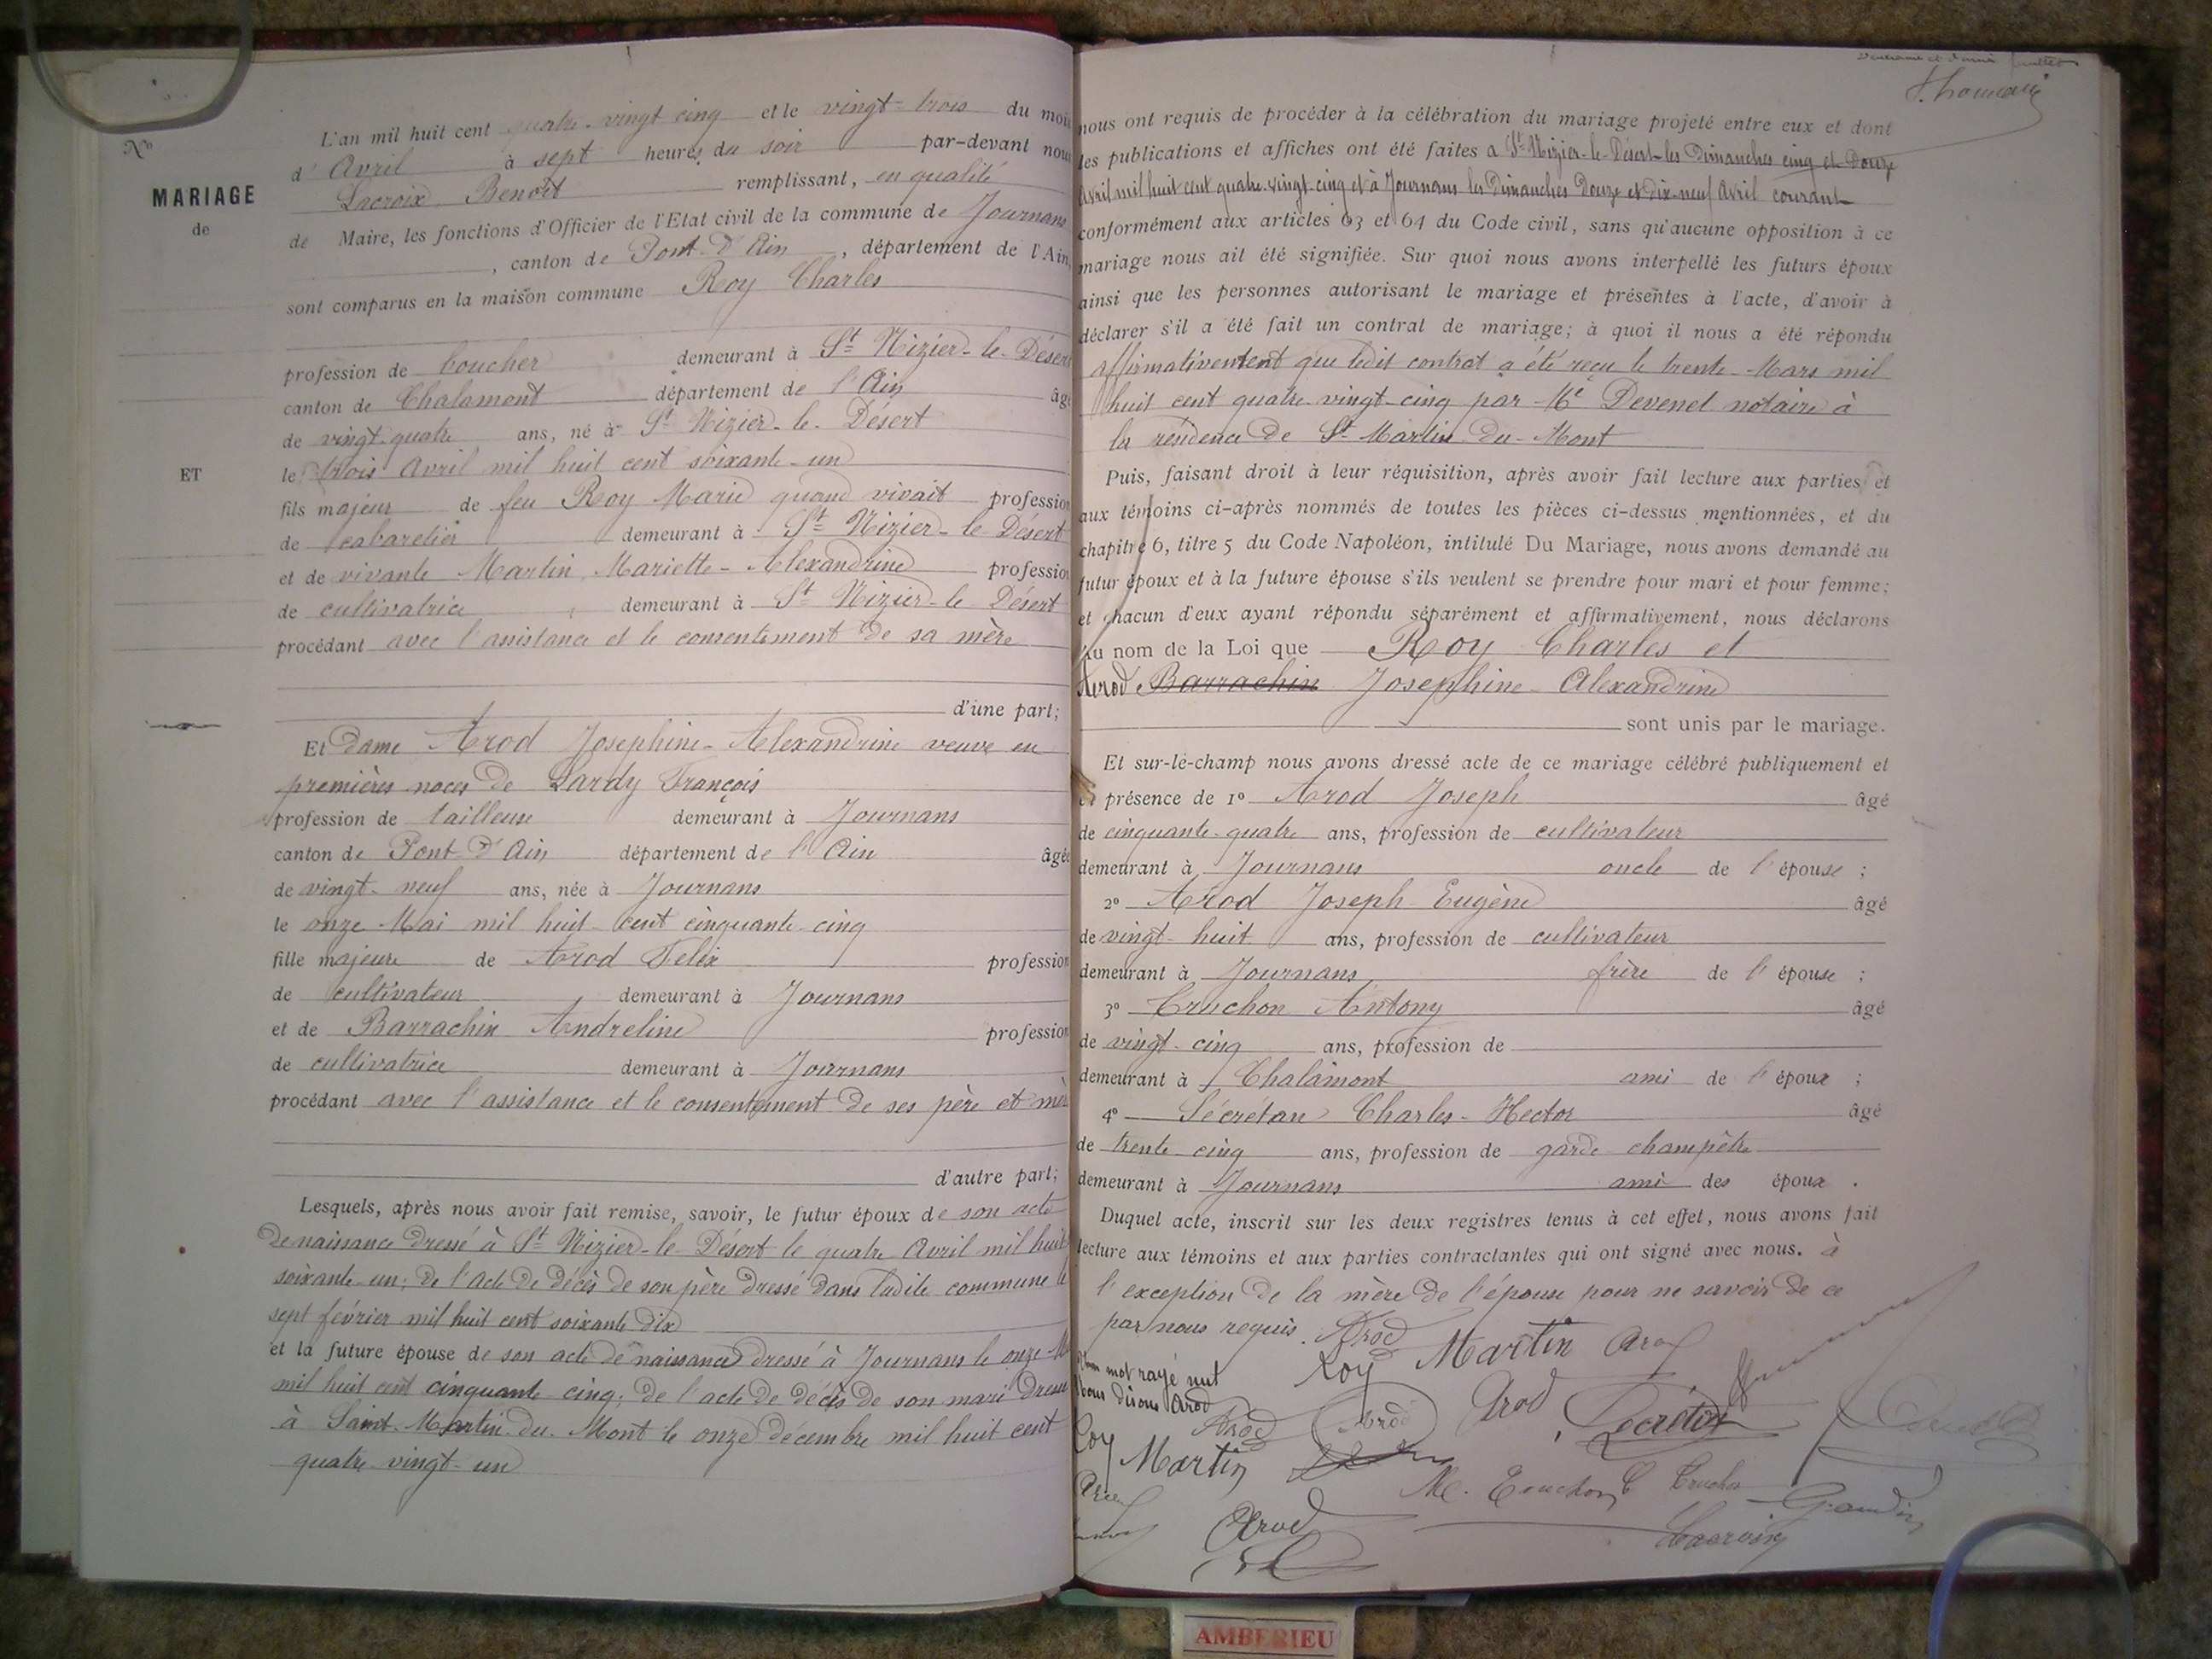 No
MARIAGE
de
ET
L'an mil huit cent quatre-vingt cinq et le vingt-trois du mois
d'Avril à sept heures du soir par-devant nous
Lacroix Benoît remplissant, en qualité
de Maire, les fonctions d'Officier de l'Etat civil de la commune de Journans
, canton de Pont-d'Ain, département de l'Ain,
sont comparus en la maison commune Roy Charles
profession de boucher demeurant à St Nizier-le-Désert
canton de Chalamont département de l'Ain âgé
de vingt-quatre ans, né à St Nizier-le-Désert
le trois Avril mil huit cent soixante-un
fils majeur de feu Roy Marie quand vivait profession
de cabaretier demeurant à St Nizier-le-Désert
et de vivante Martin Mariette-Alexandrine profession
de cultivatrice demeurant à St Nizier-le Désert
procédant avec l'assistance et le consentement de sa mère
d'une part;
Et Dame Arod Josephine-Alexandrine veuve en
premières noces de Lardy François
profession de tailleuse demeurant à Journans
canton de Pont-d'Ain département de l'Ain âgée
de vingt-neuf ans, née à Journans
le onze Mai mil huit-cent cinquante-cinq
fille majeure de Arod Felix profession
de cultivateur demeurant à Journans
et de Barrachin Andreline profession
de cultivatrice demeurant à Journans
procédant avec l'assistance et le consentement de ses père et mère
d'autre part;
Lesquels, après nous avoir fait remise, savoir, le futur époux de son acte
de naissance dressé à St Nizier-le-Désert le quatre Avril mil huit
soixante-un; de l'acte de décès de son père dressé dans ladite commune le
sept février mil huit cent soixante dix
et la future épouse de son acte de naissance dressé à Journans le onze
mil huit cent cinquante-cinq; de l'acte de décès de son mari dressé
à Saint-Martin-du-Mont le onze décembre mil huit cent
quatre-vingt-un
nous ont requis de procéder à la célébration du mariage projeté entre eux et dont
les publications et affiches ont été faites à St-Nizier-le-Désert les Dimanches cinq et Douze
Avril mil huit cent quatre-vingt-cinq et à Journans les Dimanches Douze et dix-neuf Avril courant
conformément aux articles 63 et 64 du Code civil, sans qu'aucune opposition à ce
mariage nous ait été signifiée. Sur quoi nous avons interpellé les futurs époux
ainsi que les personnes autorisant le mariage et présentes à l'acte, d'avoir à
déclarer s'il a été fait un contrat de mariage; à quoi il nous a été répondu
affirmativement que ledit contrat a été reçu le trente-Mars mil
huit cent quatre-vingt-cinq par Me Devenel notaire à
la résidence de St Martin-du-Mont
Puis, faisant droit à leur réquisition, après avoir fait lecture aux parties et
aux témoins ci-après nommés de toutes les pièces ci-dessus mentionnées, et du
chapitre 6, titre 5 du Code Napoléon, intitulé Du Mariage, nous avons demandé au
futur époux et à la future épouse s'ils veulent se prendre pour mari et pour femme;
et chacun d'eux ayant répondu séparément et affirmativement, nous déclarons
Au nom de la Loi que Roy Charles et
Arod Barrachin Josephine-Alexandrine
sont unis par le mariage.
Et sur-le-champ nous avons dressé acte de ce mariage célébré publiquement et
en présence de 1o Arod Joseph âgé
de cinquante-quatre ans, profession de cultivateur
demeurant à Journans oncle de l'épouse ;
2o Arod Joseph Eugène âgé
de vingt-huit ans, profession de cultivateur
demeurant à Journans frère de l'épouse ;
3o Cruchon Antony âgé
de vingt-cinq ans, profession de
demeurant à Chalamont ami de l'époux ;
4o Sécrétan Charles-Hector âgé
de trente cinq ans, profession de garde champêtre
demeurant à Journans ami des époux .
Duquel acte, inscrit sur les deux registres tenus à cet effet, nous avons fait
lecture aux témoins et aux parties contractantes qui ont signé avec nous. à
l'exception de la mère de l'épouse pour ne savoir de ce
par nous requis. Arod
Roy Martin Arod
mot rayé nul
nous disons Arod
Arod Arod Arod Secrétan
Roy
Martin
M. Cruchon C Cruchon Gaudin
Arod
Lacroix
AMBERIEU